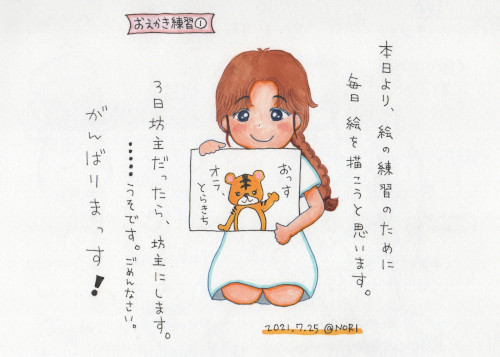 おえかき練習①
本日より、絵の練習のために
毎日 絵を描こうと思います。
おっす
オラ、
とらきち
3日坊主だったら、坊主にします。
……うそです。ごめんなさい。
がんばりまっす！
2021.7.25 @NORI